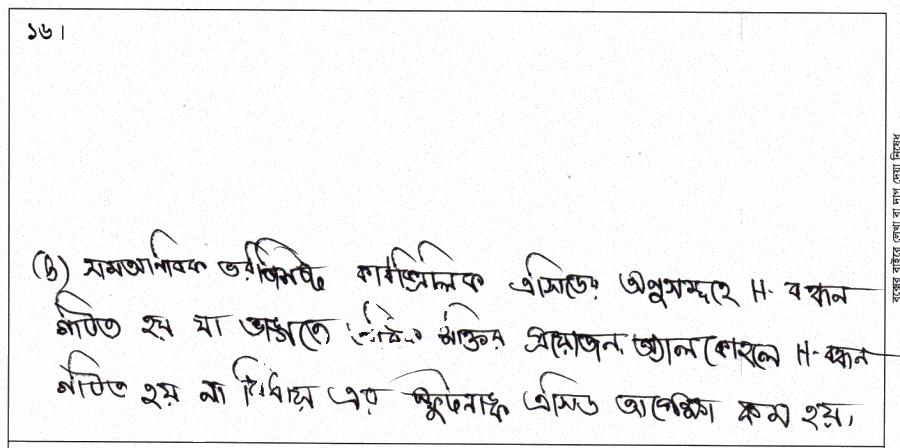 ১৬।
(b) সমআণবিক ভরবিশিষ্ট কার্বক্সিলিক এসিডের অণুসমূহে H-বন্ধন
গঠিত হয় যা ভাঙ্গতে অধিক শক্তির প্রয়োজন, অ্যালকোহলে H-বন্ধন
গঠিত হয় না বিধায় এর স্ফুটনাঙ্ক এসিড অপেক্ষা কম হয়।
বক্সের বাইরে লেখা বা দাগ দেয়া নিষেধ